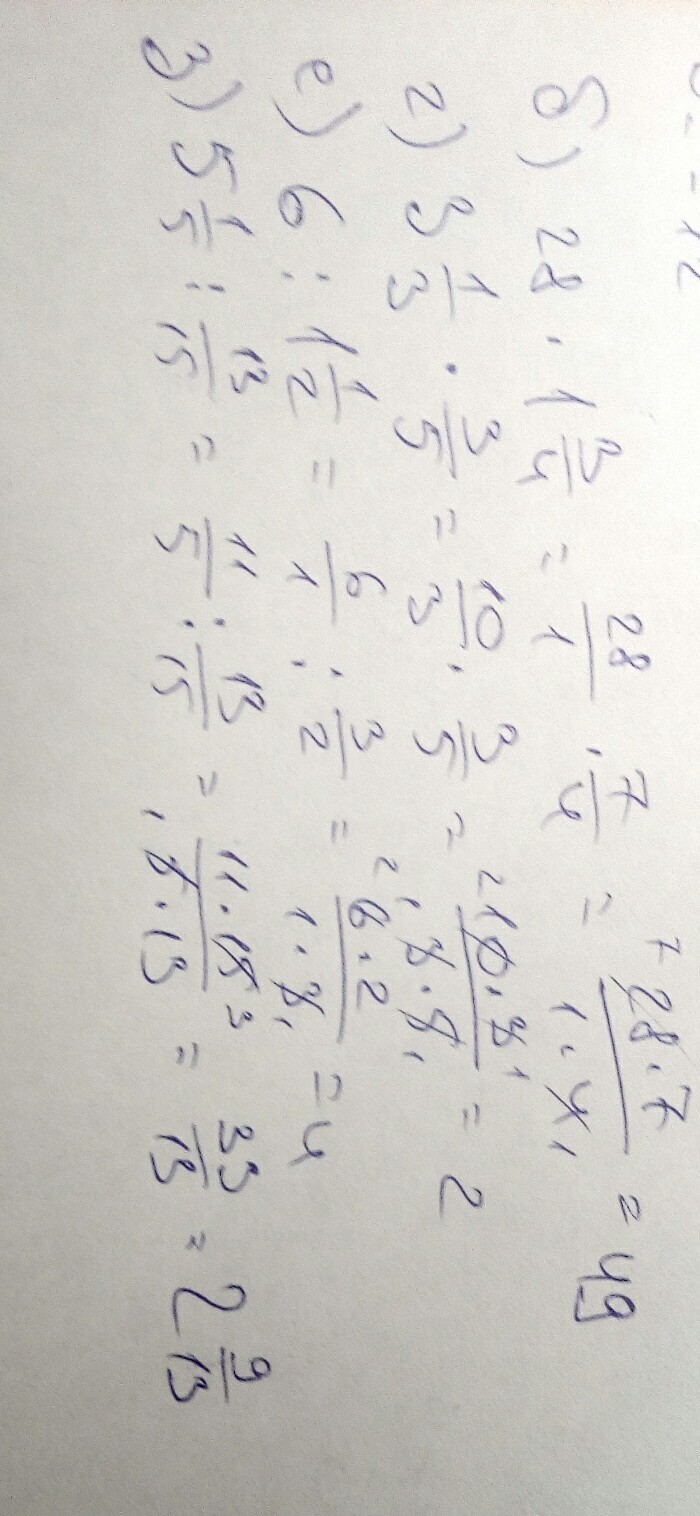 б) 28 · 1 3/4 = 28/1 · 7/4 = 28·7/1·4 = 49
г) 3 1/3 · 3/5 = 10/3 · 3/5 = 10·3/3·5 = 2
е) 6 : 1 1/2 = 6/1 : 3/2 = 6·2/1·3 = 4
з) 5 1/5 : 13/15 = 11/5 : 13/15 = 11·15/5·13 = 33/13 = 2 9/13